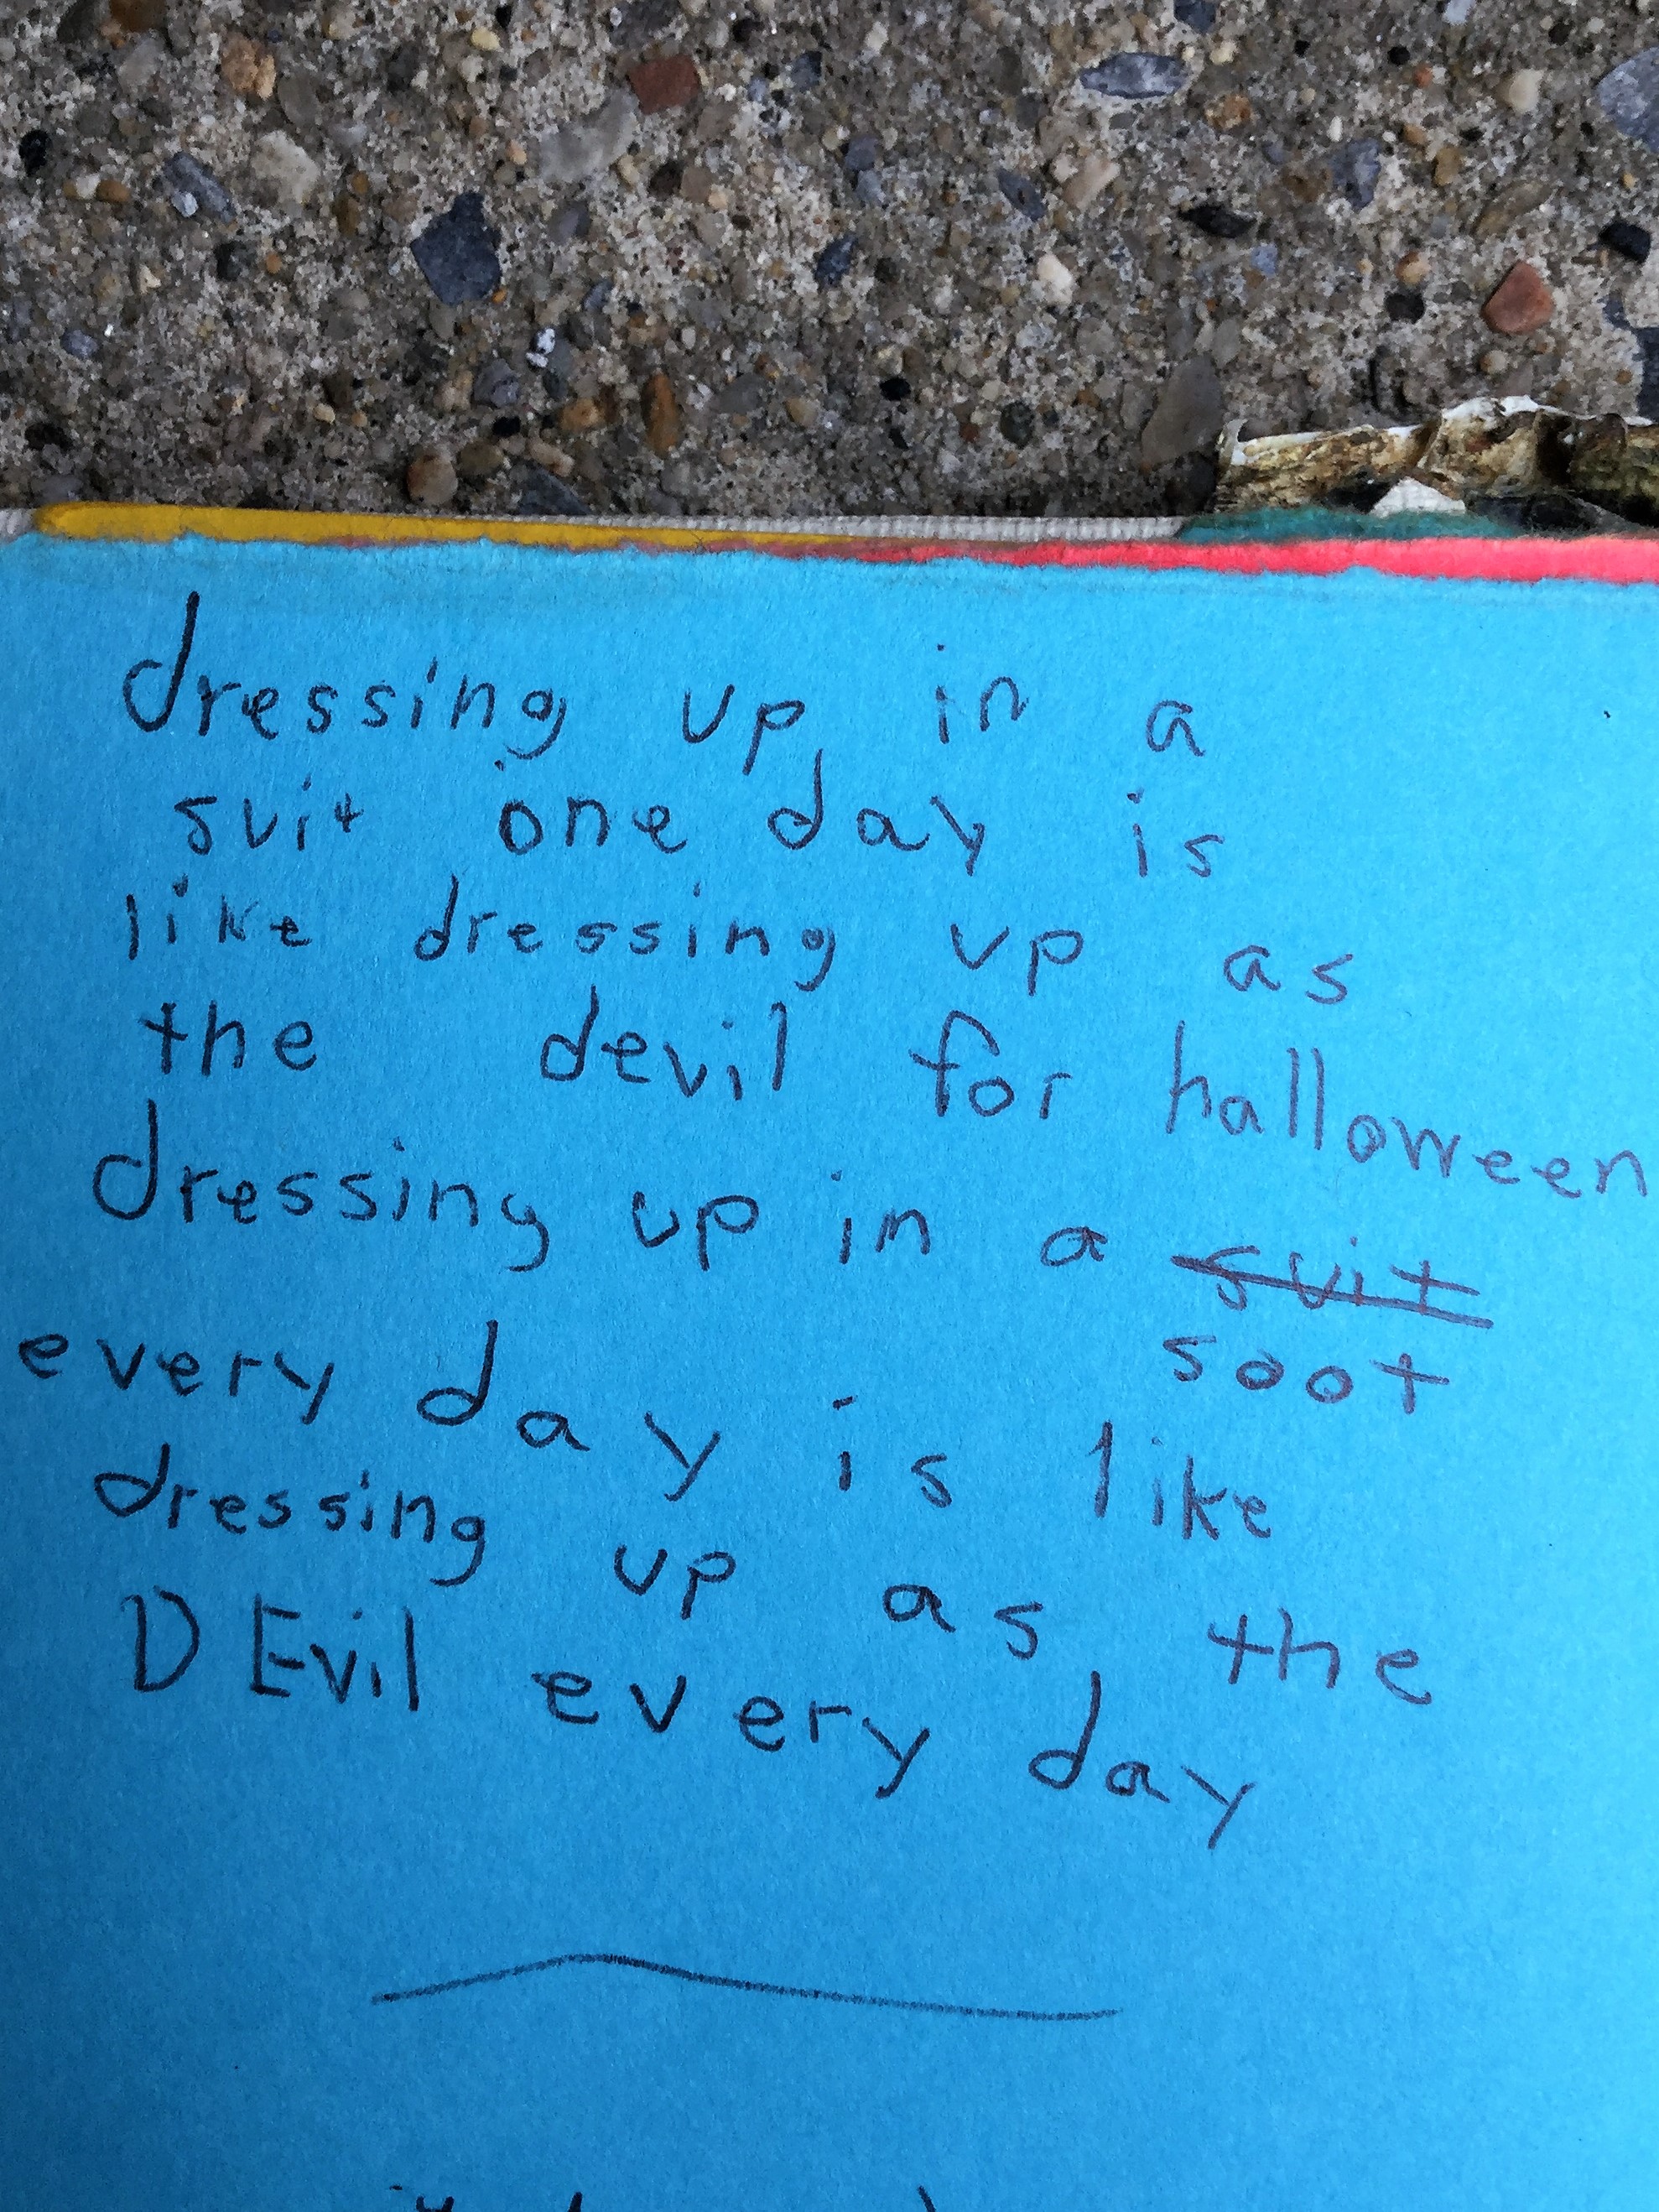 dressing up in a
suit one day is
like dressing up as
the devil for halloween
dressing up in a suit
soot
every day is like
dressing up as the
DEvil every day